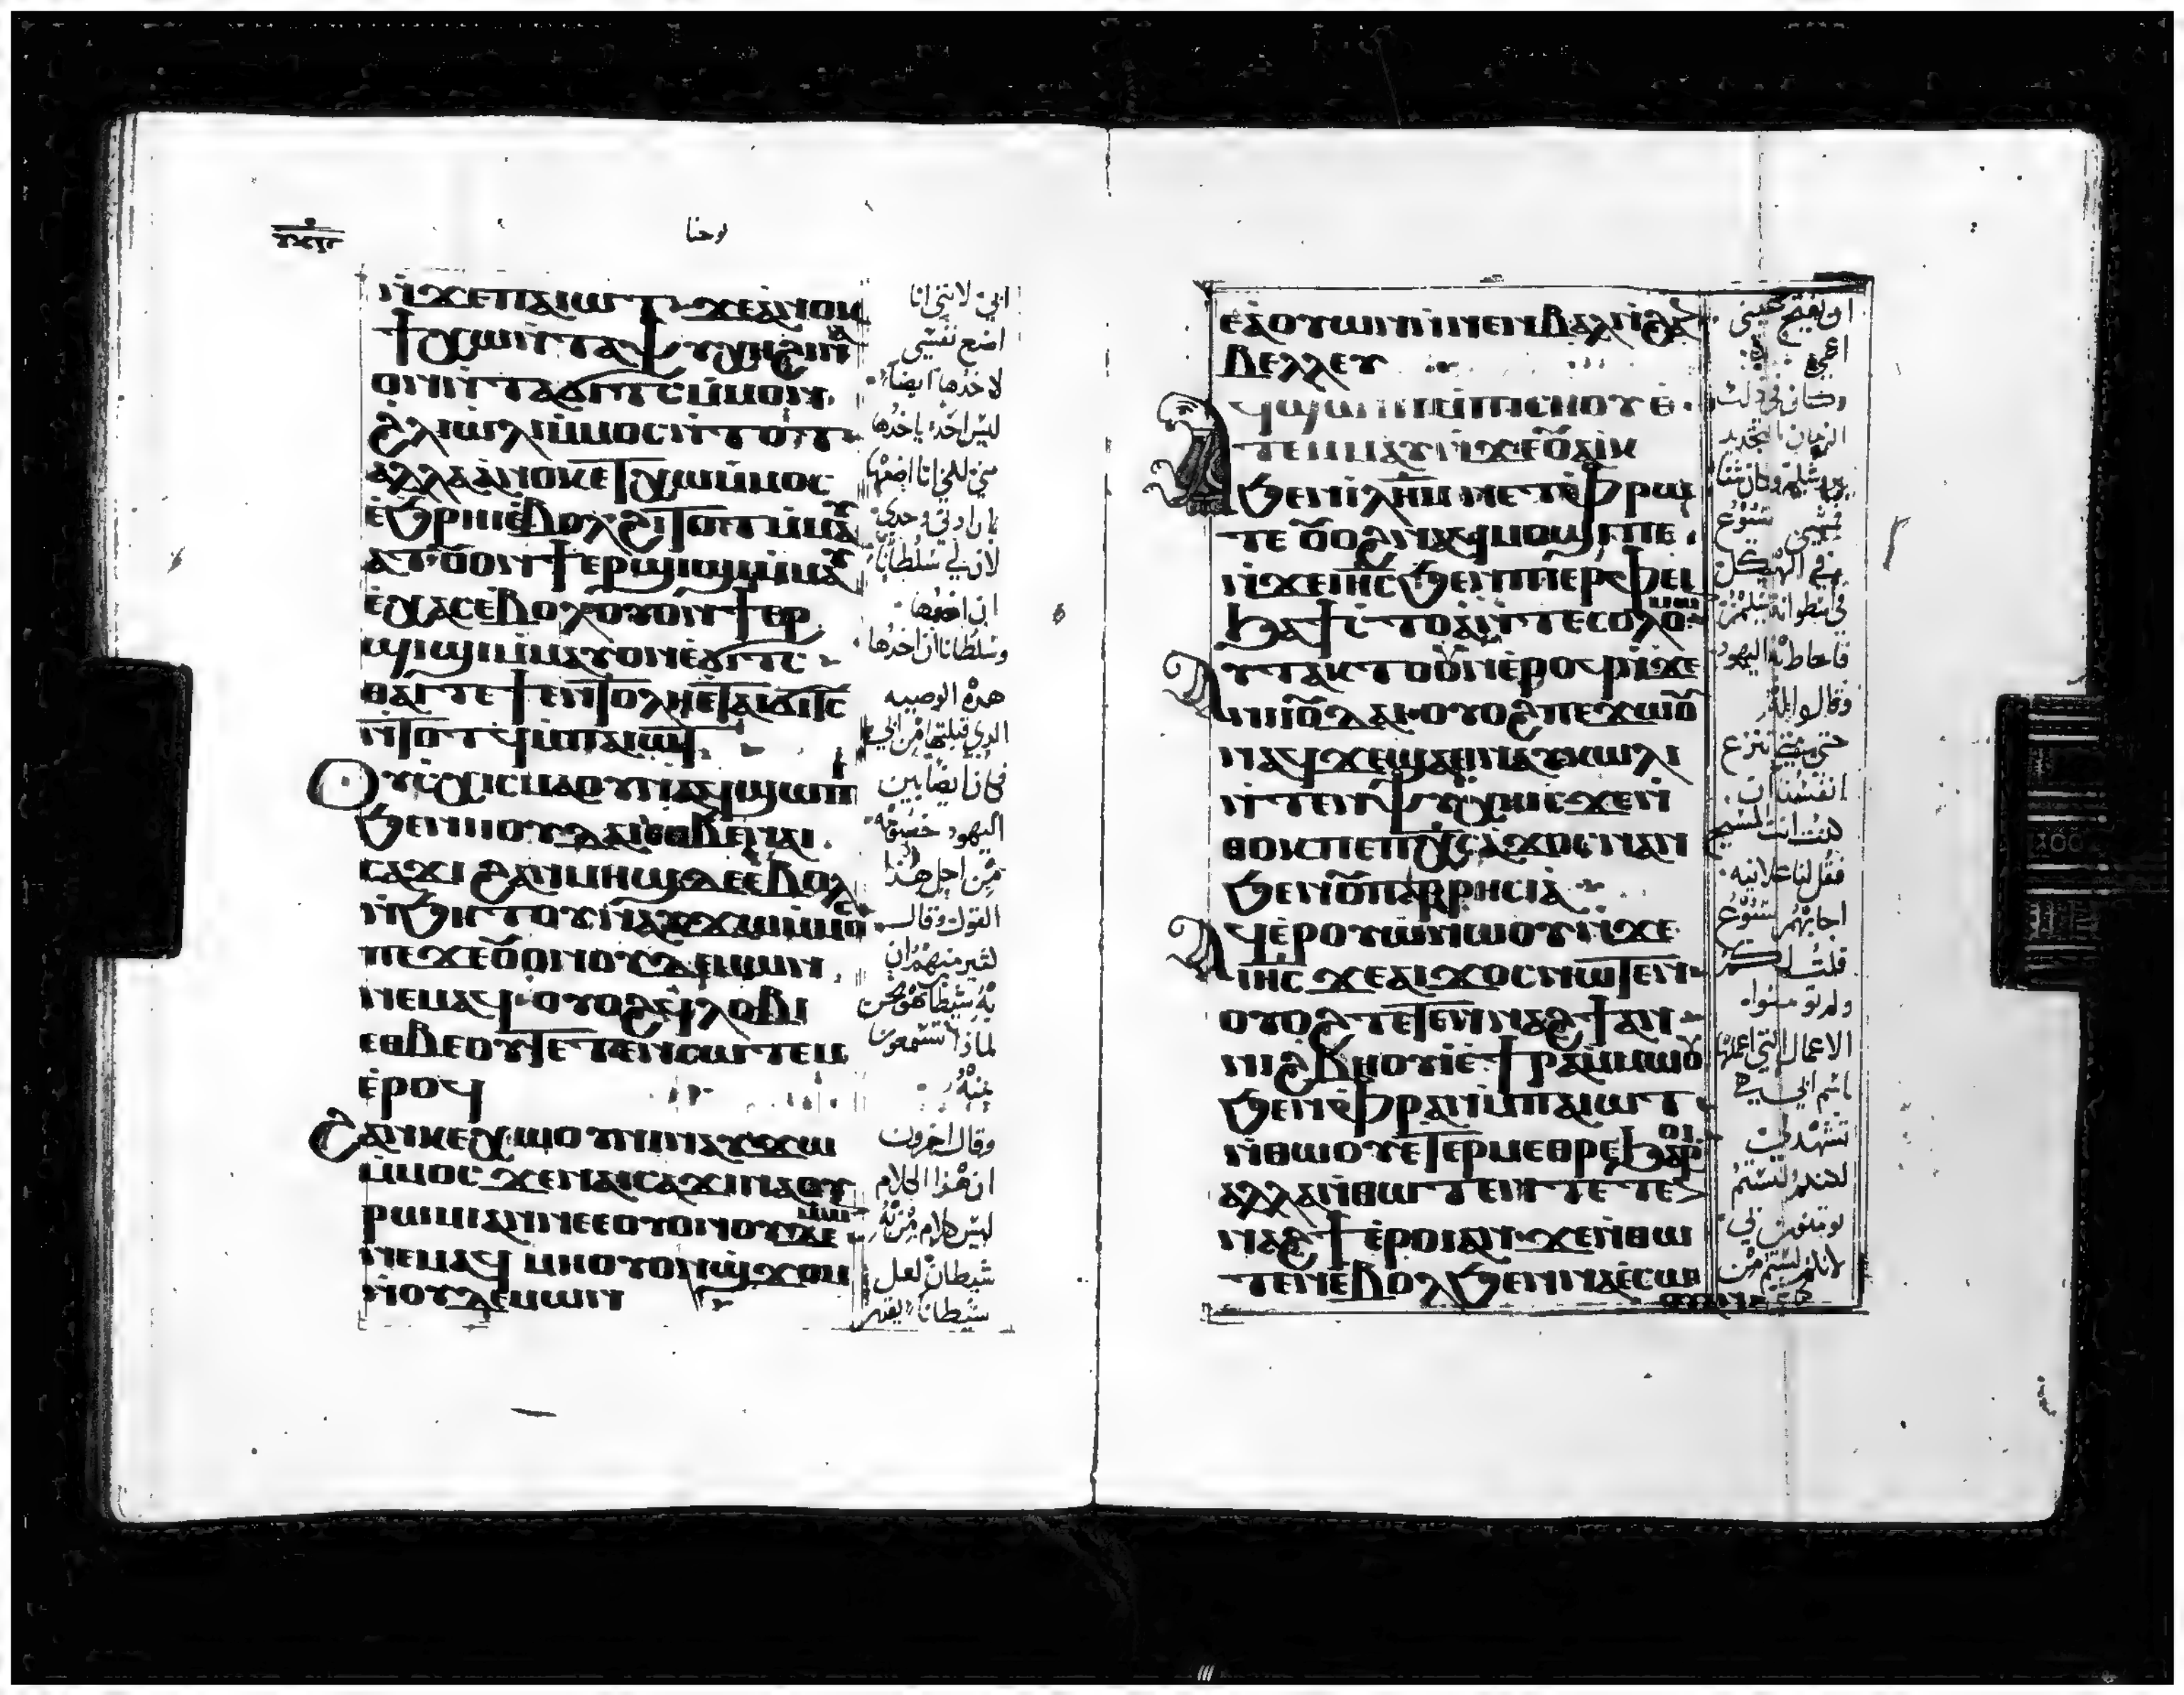 يوحنا
ⲛ̇ϫⲉⲡⲁⲓⲱⲧ ϫⲉⲁ̇ⲛⲟⲕ
ϯⲭⲱⲛ̇ⲧⲁⲯⲩⲭⲏϩⲓⲛⲁ
ⲟⲛⲛ̇ⲧⲁϭⲓⲧⲥⲙ̇ⲙⲟⲛ
ϩⲗⲓⲱⲗⲓⲙ̇ⲙⲟⲥⲛ̇ⲧⲟⲧ
ⲁⲗⲗⲁⲁ̇ⲛⲟⲕⲉⲧⲭⲱⲙ̇ⲙⲟⲥ
ⲉ̇ϧⲣⲏⲓⲉ̇ⲃⲟⲗϩⲓⲧⲟⲧⲙ̇ⲙⲁⲩ
ⲁⲧ ⲟⲩⲟⲛϯⲉⲣϣⲓϣⲓⲙ̇ⲙⲁⲩ
ⲉ̇ⲭⲁⲥⲉ̇ⲃⲟⲗⲟⲩⲟⲛϯⲉⲣ
ϣⲓϣⲓⲙ̇ⲙⲁⲩⲟⲛⲉ̇ϭⲓⲧⲥ
ⲑⲁⲓⲧⲉϯⲉⲛⲧⲟⲗⲏⲉ̇ⲧⲁⲓϭⲓⲧⲥ
ⲛ̇ⲧⲟⲧϥⲙ̇ⲡⲁⲓⲱⲧ
ⲟⲩⲥⲭⲓⲥⲙⲁⲟⲛⲁϥϣⲱⲡⲓ
ϧⲉⲛⲛⲓⲟⲩⲇⲁⲓⲉⲑⲃⲉⲛⲁⲓ
ⲥⲁϫⲓ ϩⲁⲛⲙⲏϣⲇⲉⲉ̇ⲃⲟⲗ
ⲛ̇ϧⲏⲧⲟⲩⲛⲁⲩϫⲱⲙ̇ⲙⲟⲥ
ⲡⲉϫⲉⲟⲩⲟⲛⲟⲩⲇⲉⲙⲱⲛ
ⲛⲉⲙⲁϥ ⲟⲩⲟϩϥⲗⲟⲃⲓ
ⲉⲑⲃⲉⲟⲩⲧⲉⲧⲉⲛⲥⲱⲧⲉⲙ
ⲉ̇ⲣⲟϥ
ϩⲁⲛⲕⲉⲭⲱⲟⲩⲛⲓⲛⲁⲩϫⲱ
ⲙ̇ⲙⲟⲥ ϫⲉⲛⲁⲓⲥⲁϫⲓⲛⲁⲟⲩ
ⲣⲱⲙⲓⲁⲛⲛⲉⲉⲟⲩⲟⲛⲟⲩⲇⲉⲙⲱⲛ
ⲛⲉⲙⲁϥ ⲙⲏⲟⲩⲟⲛϣϫⲟⲙ
ⲛ̇ⲟⲩⲇⲉⲙⲱⲛ
ابي لانني انا
اضع نفسي
لاخدها ايضا
ليس احد ياخدها
مني لكني انا اضعها
بارادتي وحدي
لان لي سلطانا
ان اضعها
وسلطانا ان اخدها
هده الوصيه
الدي قبلتها من ابي
فكان ايضا بين
اليهود
من اجل هدا
القول وقال
كثير منهم ان
به شيطان
لمادا تستمعون
منه
وقال اخرون
ان هدا الكلام
ليس كلام من به
شيطان لعل
شيطانا يقدر
ⲉ̇ⲁⲟⲩⲱⲛⲛ̇ⲛⲉⲛⲃⲁⲗⲛ̇ϩⲁⲛ
ⲃⲉⲗⲗⲉⲩ
ⲁϥϣⲱⲡⲓⲙ̇ⲡⲓⲥⲏⲟⲩⲉ̇
ⲧⲉⲙⲙⲁⲩⲛ̇ϫⲉⲟⲩⲁⲓⲕ
ϧⲉⲛⲓⲗⲏⲙ ⲛⲉⲧⲉⲫⲣⲱ
ⲧⲉ ⲟⲩⲟϩⲛⲁϥⲙⲟϣⲓⲡⲉ
ⲛ̇ϫⲉⲓⲏⲥϧⲉⲛⲡⲓⲉⲣⲫⲉⲓ
ϧⲁϯⲥⲧⲟⲁ̇ⲛ̇ⲧⲉⲥⲟⲗⲟⲙⲱⲛ
ⲁⲩⲧⲁⲕⲧⲟⲟⲩⲛⲉ̇ⲣⲟϥⲛ̇ϫⲉ
ⲛⲓⲓⲟⲩⲇⲁⲓ ⲟⲩⲟϩⲡⲉϫⲱⲟⲩ
ⲛⲁϥϫⲉϣⲁⲑⲛⲁⲩⲕⲱⲗⲓ
ⲛ̇ⲧⲉⲛⲯⲩⲭⲏⲓⲥϫⲉⲛ̇
ⲑⲟⲕⲡⲉⲡⲭⲥⲁ̇ϫⲟⲥⲛⲁⲛ
ϧⲉⲛⲟⲩⲡⲁⲣⲣⲏⲥⲓⲁ̇
ⲁϥⲉ̇ⲣⲟⲩⲱ̇ⲛⲱⲟⲩⲛ̇ϫⲉ
ⲓⲏⲥ ϫⲉⲁⲓϫⲟⲥⲛⲱⲧⲉⲛ
ⲟⲩⲟϩⲧⲉⲧⲉⲛⲛⲁϩϯⲁⲛ
ⲛⲓϩⲃⲏⲟⲩⲓⲉ̇ϯⲣⲁⲙ̇ⲙⲱⲟⲩ
ϧⲉⲛⲫⲣⲁⲛⲙ̇ⲡⲁⲓⲱⲧ
ⲛ̇ⲑⲱⲟⲩⲉⲧⲉⲣⲙⲉⲑⲣⲉϧⲁⲣⲟⲓ
ⲁⲗⲗⲁⲛ̇ⲑⲱⲧⲉⲛⲧⲉⲧⲉ
ⲛⲁϩϯⲉ̇ⲣⲟⲓⲁⲛ ϫⲉⲛ̇ⲑⲱ
ⲧⲉⲛⲉ̇ⲃⲟⲗϧⲉⲛⲛⲁⲉ̇ⲥⲱⲟⲩ
ان يفتح عيني
اعمي
وكان في دلك
الزمان التجديد
يروشليم وكان شتا
يسوع
في الهيكل
في اسطوانة سليمن
فاحاط به اليهود
وقالوا له
حتي متي تنزع
انفسنا
كنت انت المسيح
فقل لنا علانيه
اجابهم يسوع
قلت لكم
ولم تومنوا
الاعمال التي اعملها
باسم ابي هي
تشهد لي
لكنكم لستم
تومنون بي
لانكم لستم من